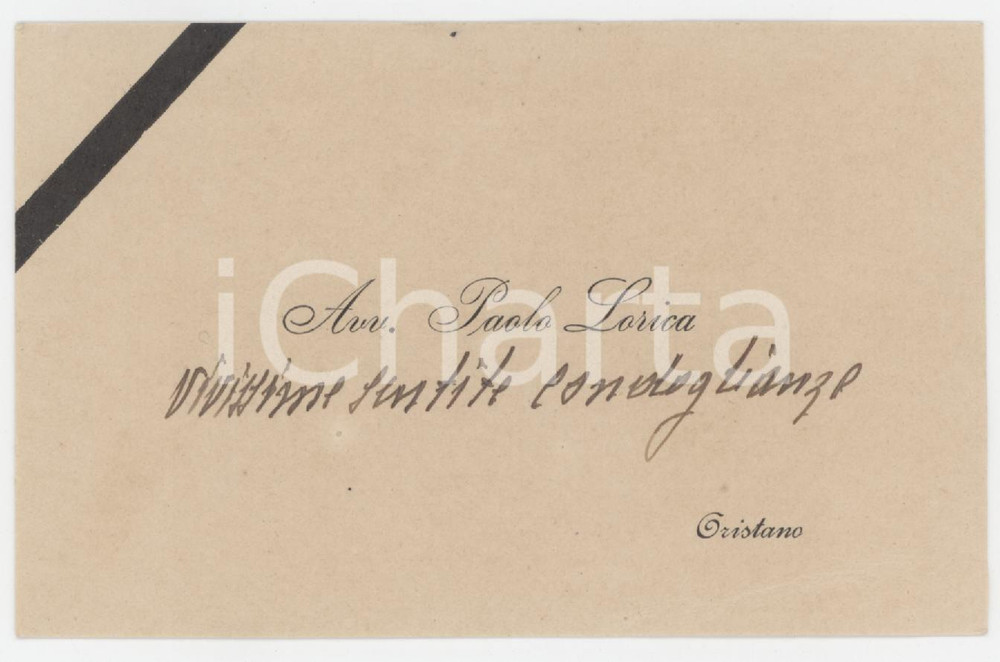 iCharta
Avv. Paolo Lorica
Vivissime sentite condoglianze
Oristano